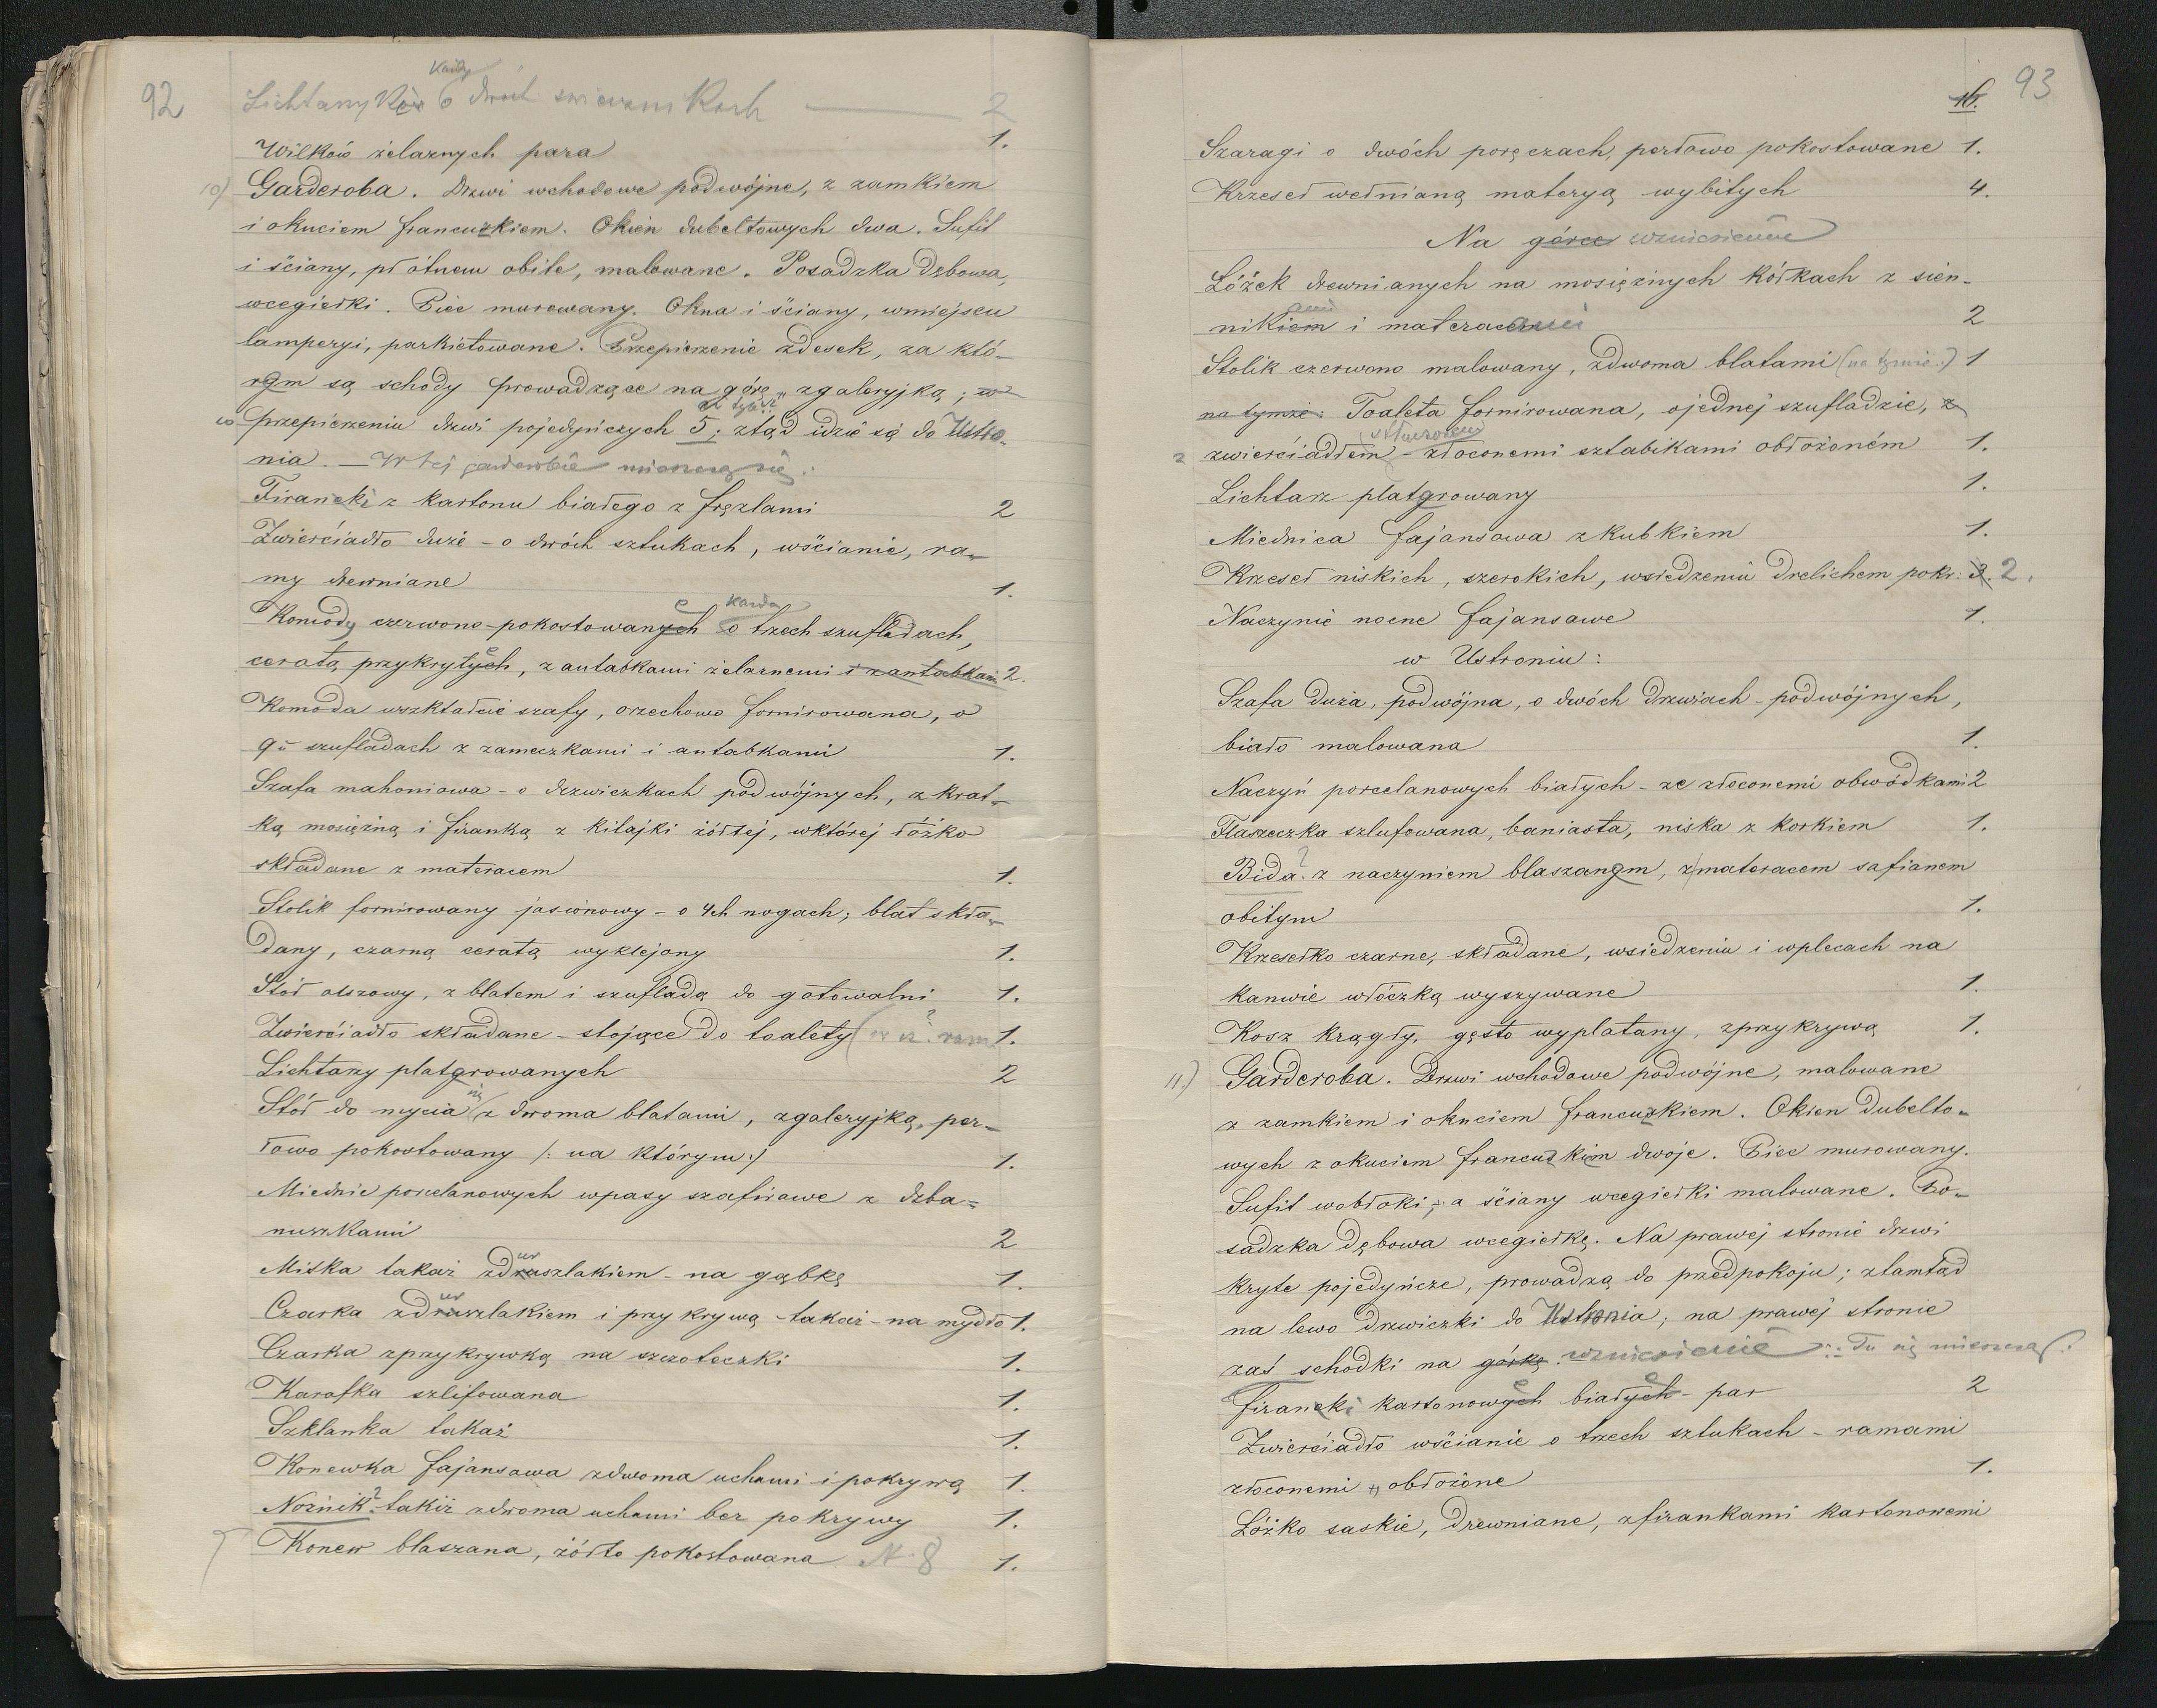 92
Każdy
Lichtarzy o dwóch świecznikach — 2
Wilków żelaznych para 1.
10) Garderoba. Drzwi wchodowe podwójne, z zamkiem
i okuciem francuzkiem. Okien dubeltowych dwa. Sufit
i ściany, płótnem obite, malowane. Posadzka dębowa,
wcegiełki. Piec murowany. Okna i ściany, wmiejscu
lamperyi, parkietowane. Przepierzenie zdesek, za któ-
rym są schody prowadzące na górę, zgaleryjką; w
w przepierzeniu drzwi pojedyńczych 5; ztąd idzie się do Ustro-
nia. — W tej garderobie mieszczą się:
Firanek z kartonu białego z fręzlami 2
Zwierciadło duże - o dwóch sztukach, wścianie, ra-
my drewniane 1.
e każda
Komody czerwono-pokostowanych o trzech szufladach,
ceratą przykrytych, z antabkami żelaznemi i zantabkami 2.
Komoda wzkształcie szafy, orzechowo fornirowana, o
9u szufladach z zameczkami i antabkami 1.
Szafa mahoniowa - o drzwiczkach podwójnych, z krat-
ką mosiężną i firanką z kitajki żółtej, wktórej łóżko
składane z materacem 1.
Stolik fornirowany jasionowy - o 4ch nogach; blat skła-
dany, czarną ceratą wyklejony 1.
Stół olszowy, z blatem i szufladą do gotowalni 1.
Zwierciadło składane - stojące do toalety 1.
Lichtarzy platyrowanych 2
się
Stół do mycia z dwoma blatami, zgaleryjką, per-
łowo pokostowany /: na którym:/ 1.
Miednic porcelanowych wpasy szafirowe z dzba-
nuszkami 2
ur
Miska takaż zdruszlakiem - na gąbkę 1.
ur
Czarka zdruszlakiem i przykrywą - takaż - na mydło 1.
Czarka zprzykrywką na szczoteczki 1.
Karafka szlifowana 1.
Szklanka takaż 1.
Konewka fajansowa zdwoma uchami i pokrywą 1.
Nożnik? takiż zdwoma uchami bez pokrywy 1.
Konew blaszana, żółto pokostowana N. 8 1.
93
16.
Szaragi o dwóch poręczach, perłowo pokostowane 1.
Krzeseł wełnianą materyą wybitych 4.
Na górce wzniesienie
Łóżek drewnianych na mosiężnych kółkach z sien-
ami
nikiem i materacami 2
Stolik czerwono malowany, zdwoma blatami (na tymże:) 1
na tymże: Toaleta fornirowana, ojednej szufladzie, z
z zwierciadłem - złoconemi sztabikami obłożoném 1.
Lichtarz platyrowany 1.
Miednica fajansowa zkubkiem 1.
Krzeseł niskich, szerokich, wsiedzeniu drelichem pokr: 3. 2.
Naczynie nocne fajansowe 1.
w Ustroniu:
Szafa duża, podwójna, o dwóch drzwiach - podwójnych,
biało malowana 1.
Naczyń porcelanowych białych - ze złoconemi obwódkami 2
Flaszeczka szlufowana, baniasta, niska z korkiem 1.
Bida? z naczyniem blaszanym, z materacem safianem
obitym 1.
Krzesełko czarne, składane, wsiedzeniu i wplecach na
kanwie włóczką wyszywane 1.
Kosz krągły, gęsto wyplatany, zprzykrywą 1.
11.) Garderoba. Drzwi wchodowe podwójne, malowane
z zamkiem i okuciem francuzkiem. Okien dubelto-
wych z okuciem francuzkiem dwoje. Piec murowany.
Sufit wobłoki, a ściany wcegiełki malowane. Po-
sadzka dębowa wcegiełkę. Na prawej stronie drzwi
kryte pojedyńcze, prowadzą do przedpokoju; ztamtąd
na lewo drzwiczki do Ustronia; na prawej stronie
zaś schodki na górkę. wzniesienie :. Tu się mieszczą:
Firanek kartonowych białych - par 2
Zwierciadło wścianie o trzech sztukach - ramami
złoconemi obłożone 1.
Łóżko saskie, drewniane, zfirankami kartonowemi